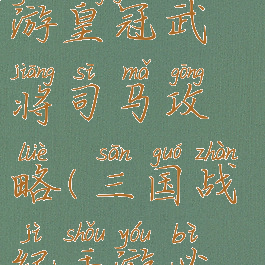 游皇冠武
jiāng sī mǎ gōng
将司马攻
lüè sān guó zhàn
略(三国战
jì shǒu yóu bì
纪手游必